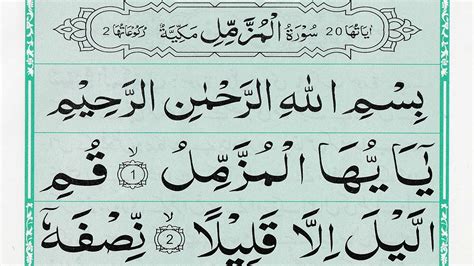 اٰيَاتُهَا 20 سُوْرَةُ الْمُزَّمِّلِ مَكِّيَّةٌ رُكُوْعَاتُهَا 2
بِسْمِ اللهِ الرَّحْمٰنِ الرَّحِيْمِ
يٰٓاَيُّهَا الْمُزَّمِّلُ ۙ 1 قُمِ
الَّيْلَ اِلَّا قَلِيْلًا ۙ 2 نِّصْفَهٗٓ